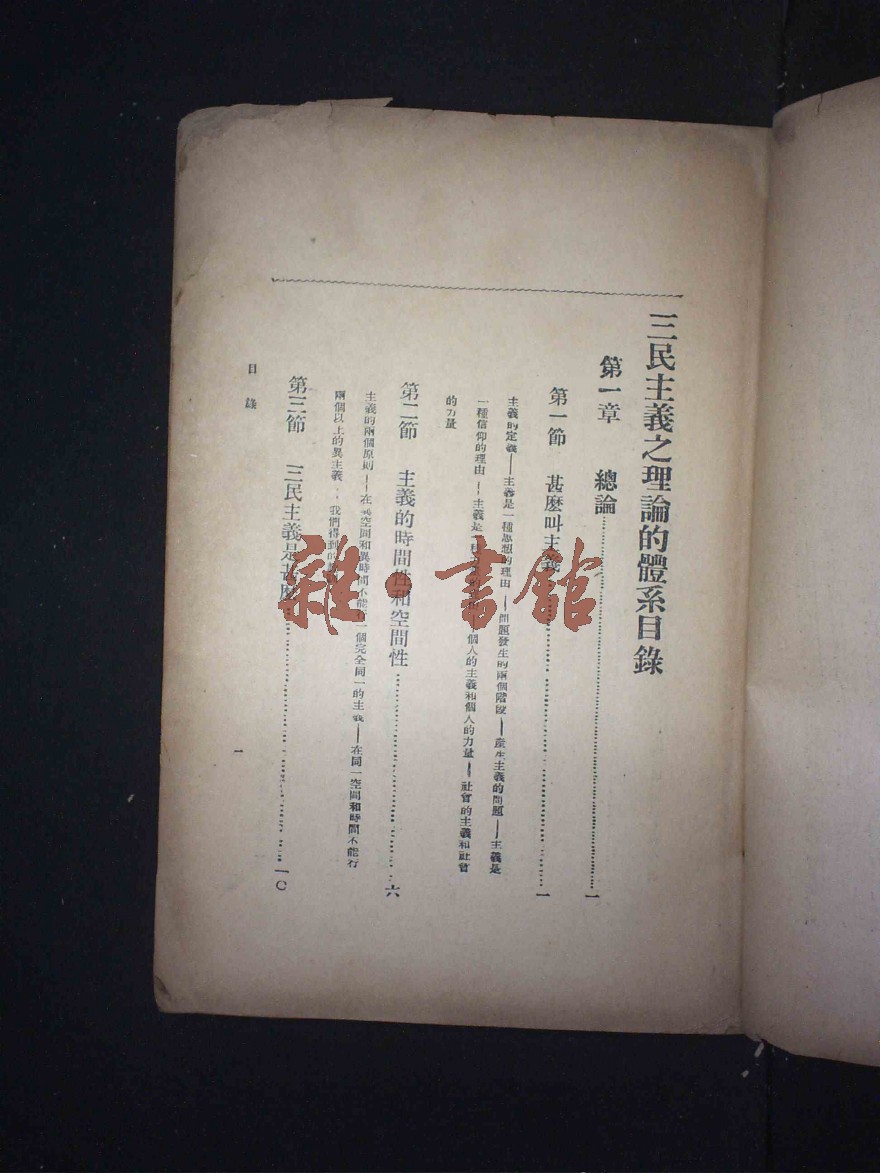 三民主義之理論的體系目錄
第一章 總論……一
第一節 甚麼叫主義……一
主義的定義——主義是一種思想的理由——問題發生的兩個階段——產生主義的問題——主義是
一種信仰的理由——主義是一種 個人的主義和個人的力量——社會的主義和社會
的力量
第二節 主義的時間性和空間性……六
主義的兩個原則——在異空間和異時間不能行一個完全同一的主義——在同一空間和時間不能行
兩個以上的異主義——我們得到的
第三節 三民主義是甚麼……一〇
目錄
一
雜·書館